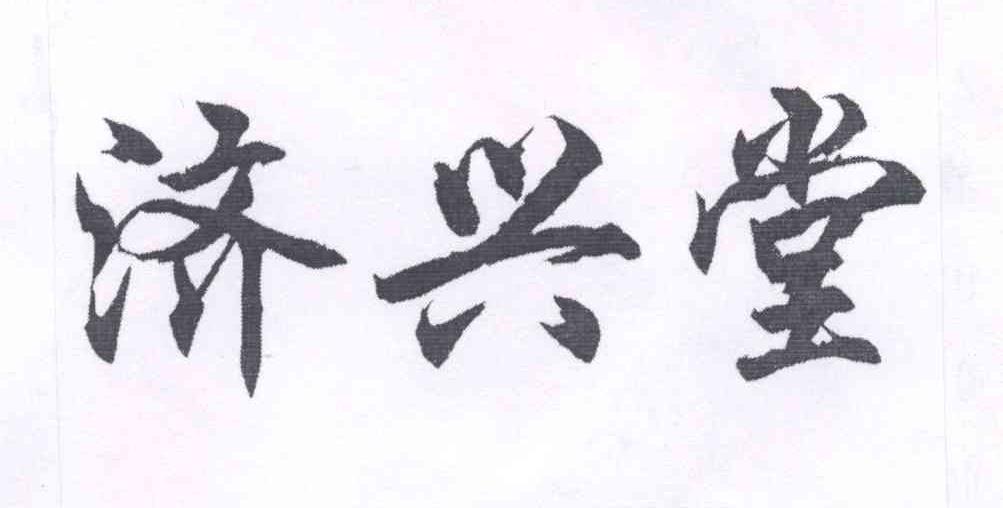 济兴堂